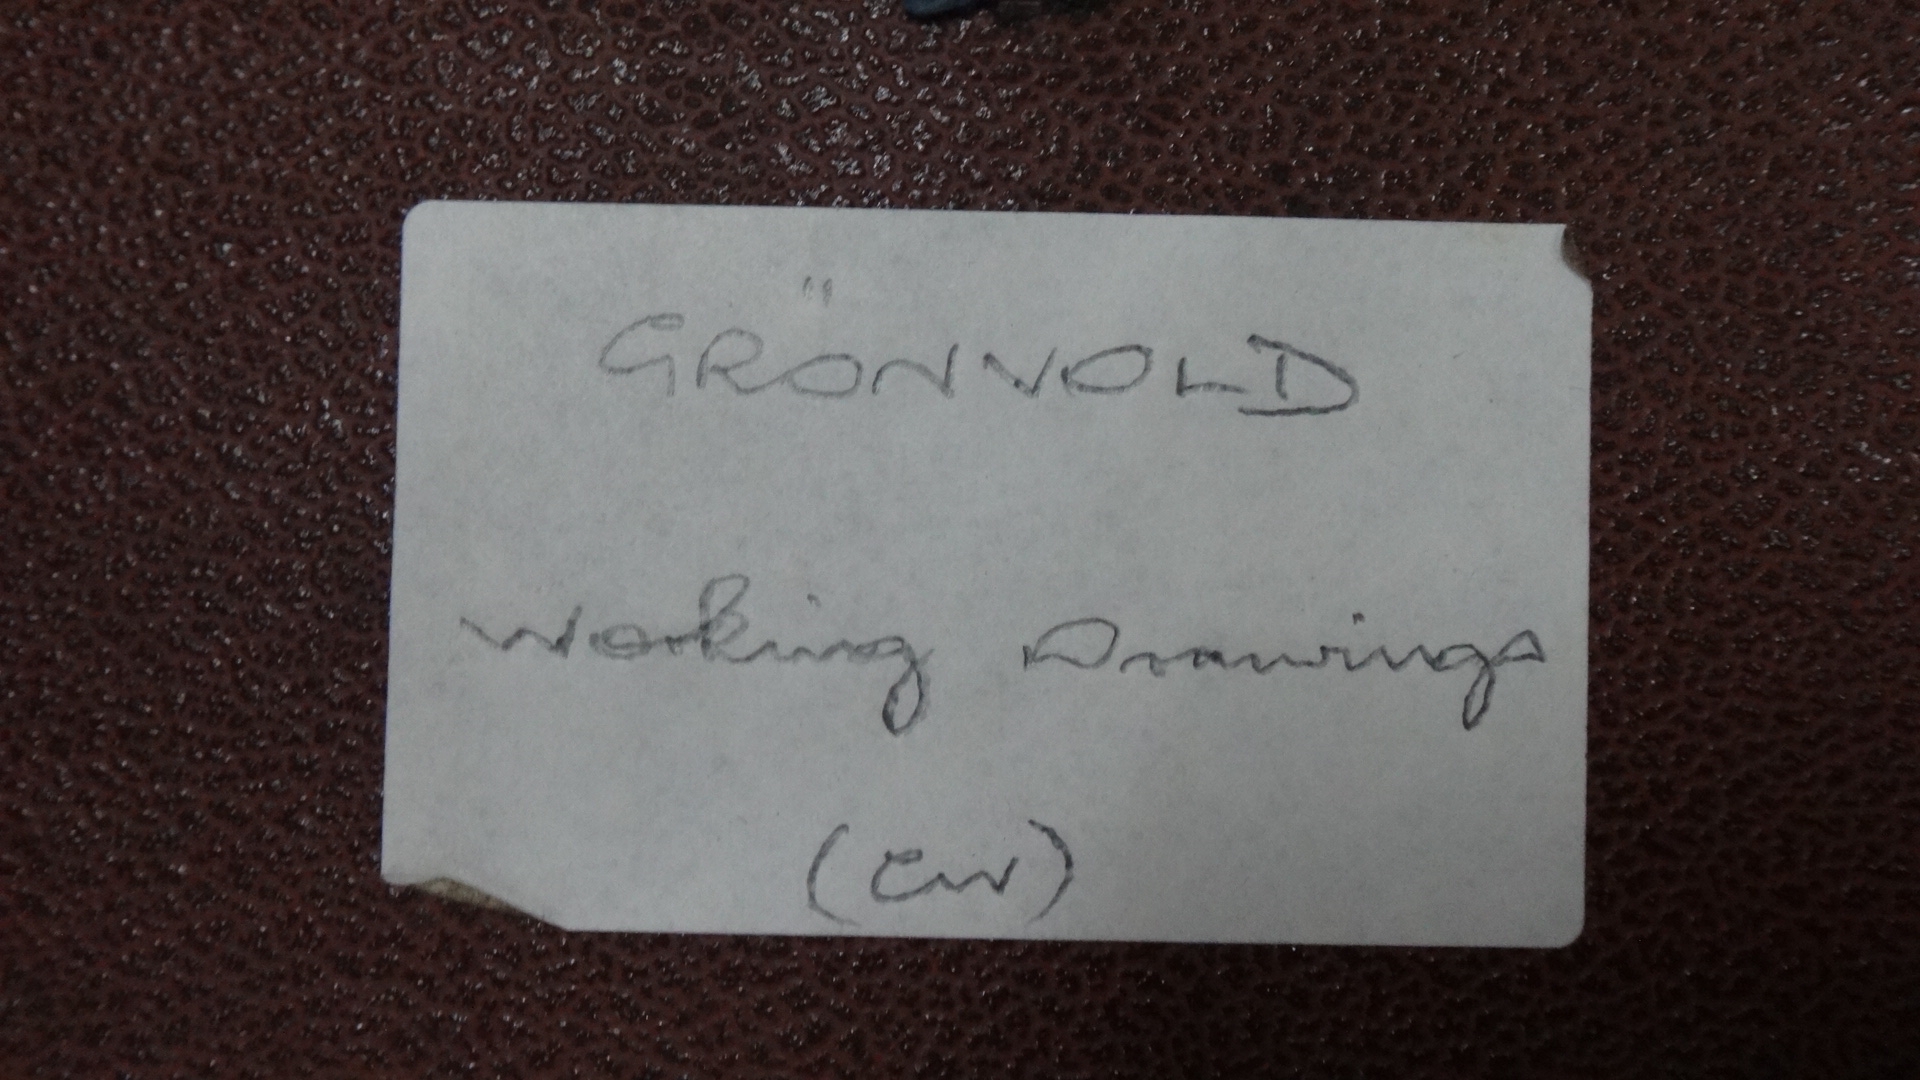 GRÖNVOLD
Working Drawings
(CW)